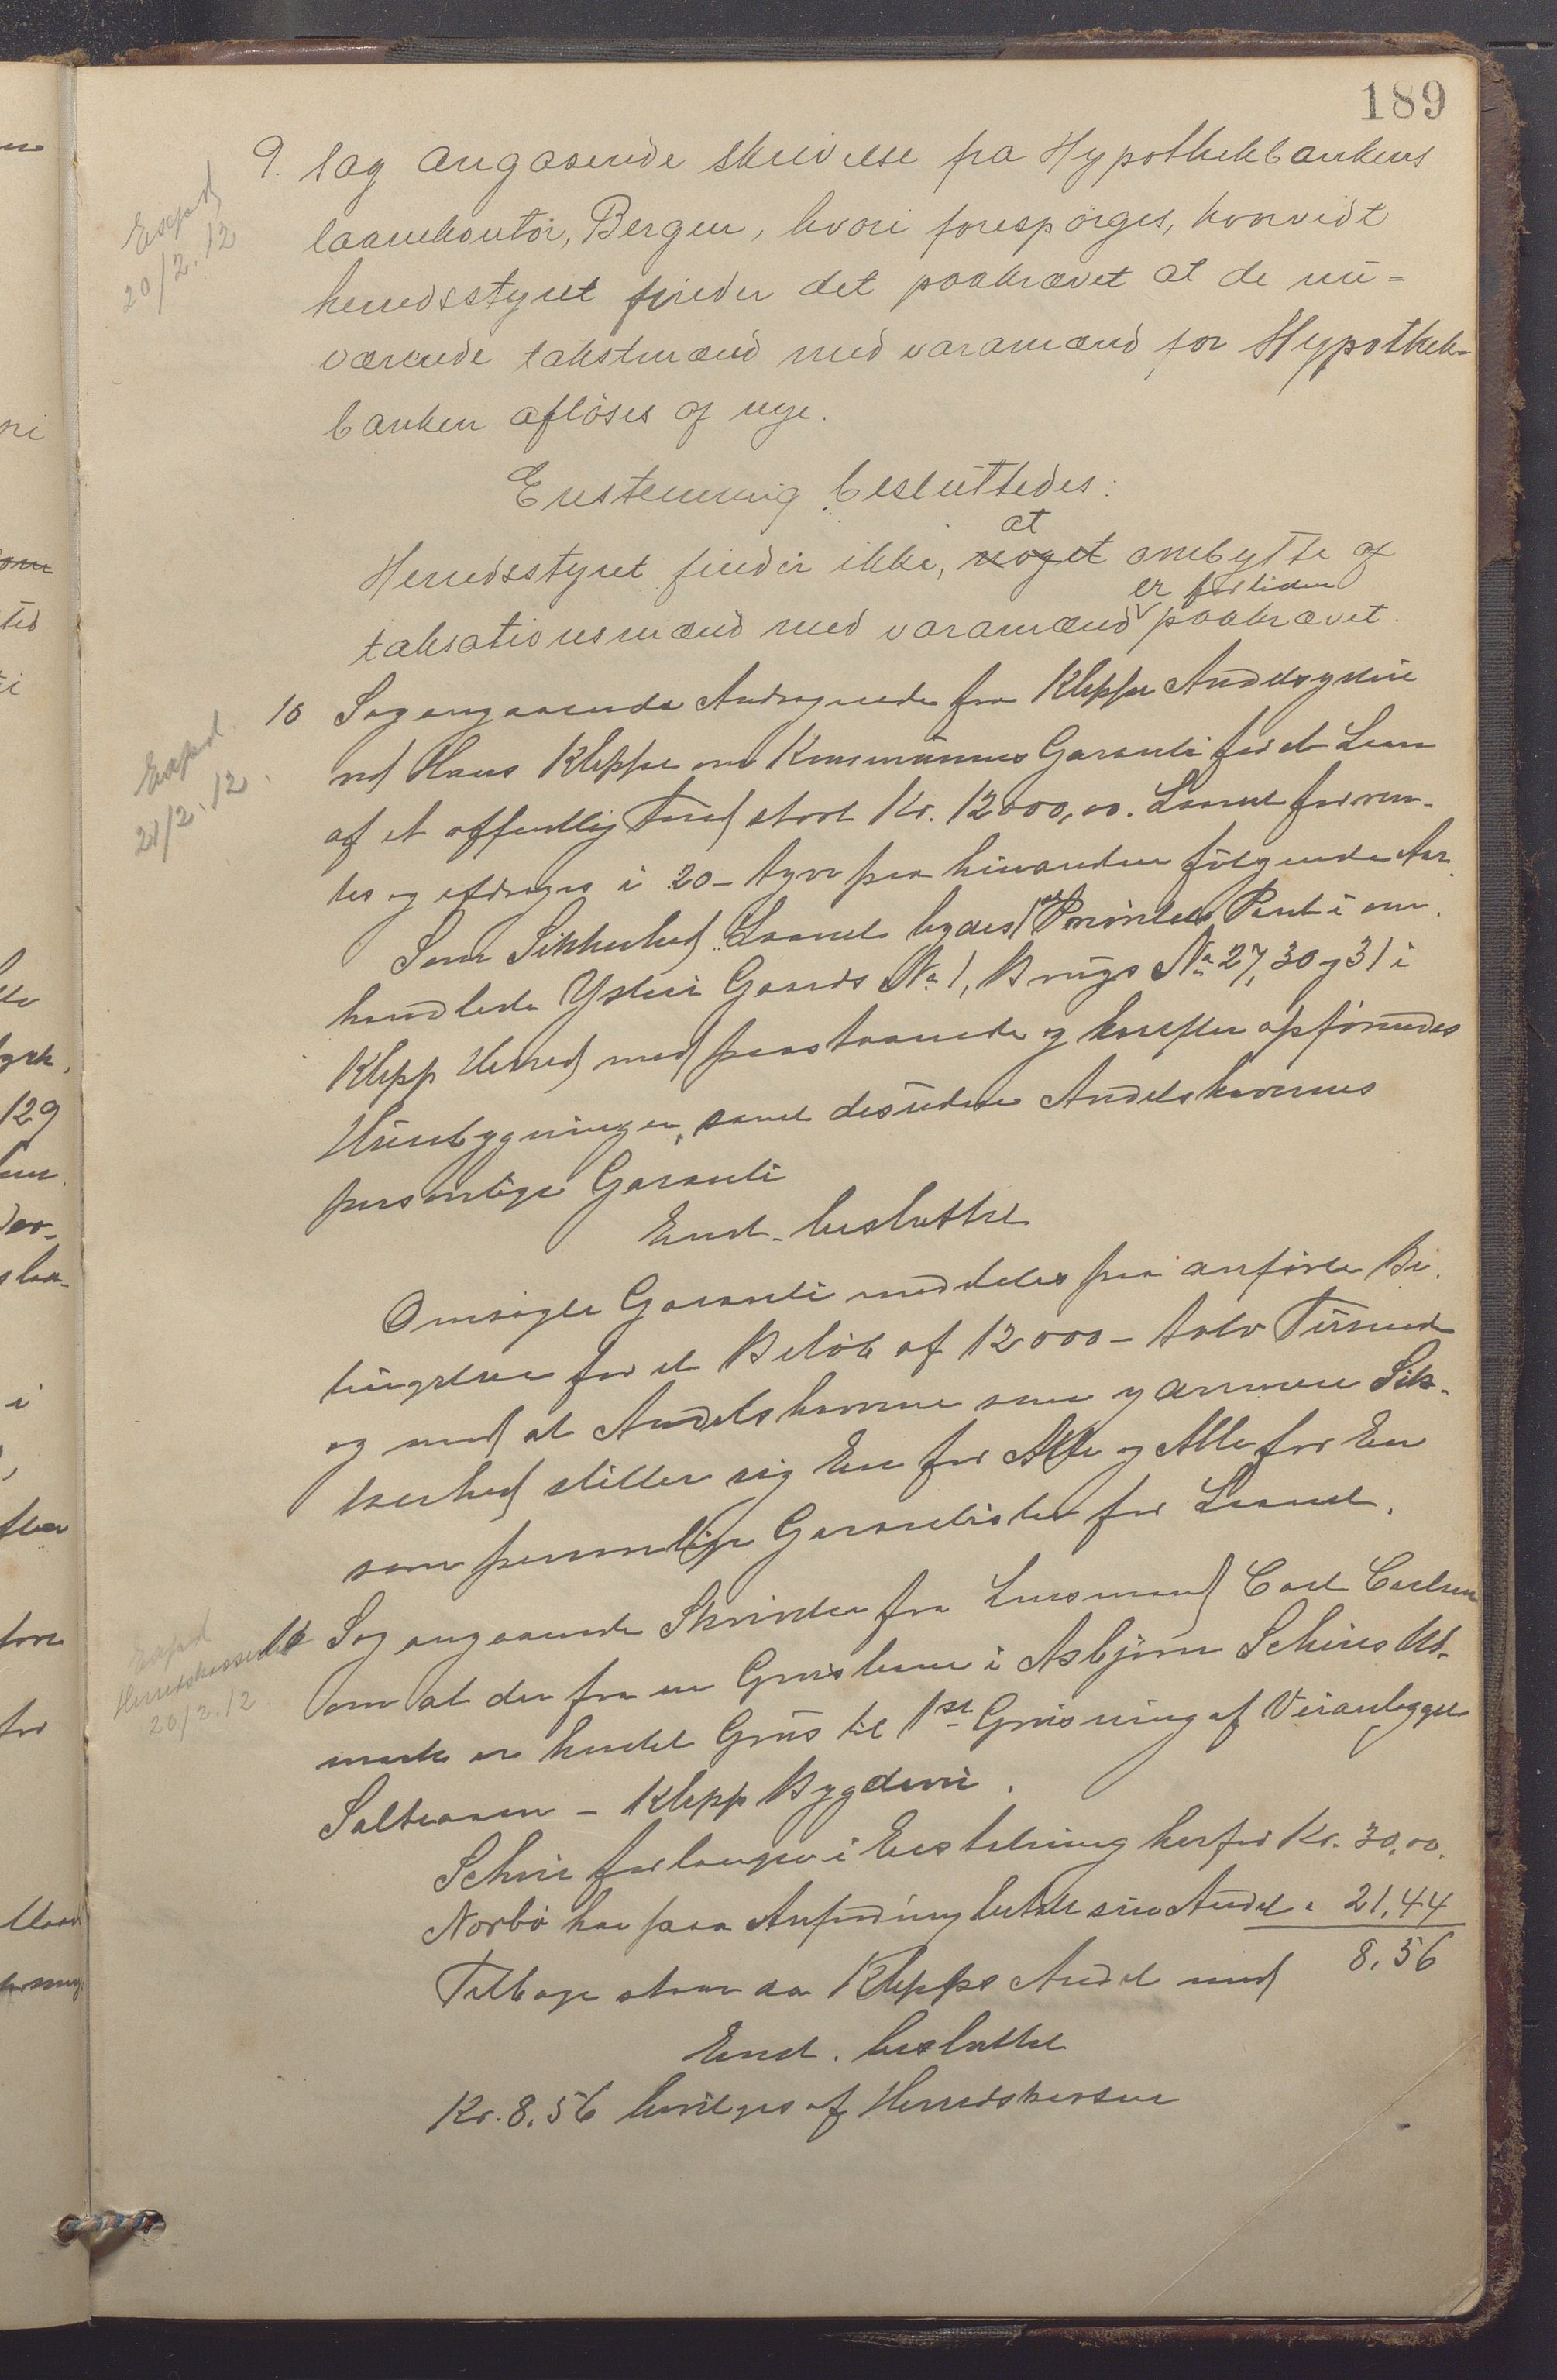 189
9. Sag angaaende skrivelse fra Hypothekbankens
Expd
20/2.12
laanekontor, Bergen, hvori forespörges, hvorvidt
herredsstyret finder det paakrævet at de nu-
værende takstmænd med varamænd for Hypothek-
banken aflöses af nye.
Enstemmig besluttedes:
at
Herredsstyret finder ikke, noget ombytte af
er for tiden
taksationsmænd med varamænd paakrævet.
10 Sag angaaende Andragende fra Kleppe Andelsysteri
Expd.
21/2.12.
ved Hans Kleppe om Kommunens Garanti for et Laan
af et offentlig Fond stort Kr. 12000,00. Laanet forren-
tes og afdrages i 20 - tyve paa hinanden følgende Aar.
Som Sikkerhed Laanet bydes 1ste Prioritets Pant i om-
handlede Ysteri Gaards No 1, Brugs No 27, 30 og 31 i
Klepp Herred med paastaaende og herefter opførendes
Husebygninger, samt desuden Andelshavernes
personlige Garanti
Enst. besluttet
Omsøgte Garanti meddeles paa anførte Be-
tingelser for et Beløb af 12000 - tolv Tusend
og med at Andelshaverne som ydermere Sik-
kerhed stiller sig En for Alle og Alle for En
som personlige Garantister for Laanet.
11 Sag angaaende Skrivelse fra Lensmand Carl Carlsen
Expd
Herredskassereren
20/2.12.
om at der fra en Grusbane i Asbjørn Scheies Ud-
mark er hentet Grus til 1ste Grusning af Veianlægget
Salteaaen - Klepp Bygdevei.
Scheie forlanger i Erstatning herfor Kr. 30,00.
Norbø har paa Anfordring betalt sin Andel " 21,44
Tilbage staar da Klepps Andel med 8,56
Enst. besluttet
Kr. 8,56 bevilges af Herredskassen